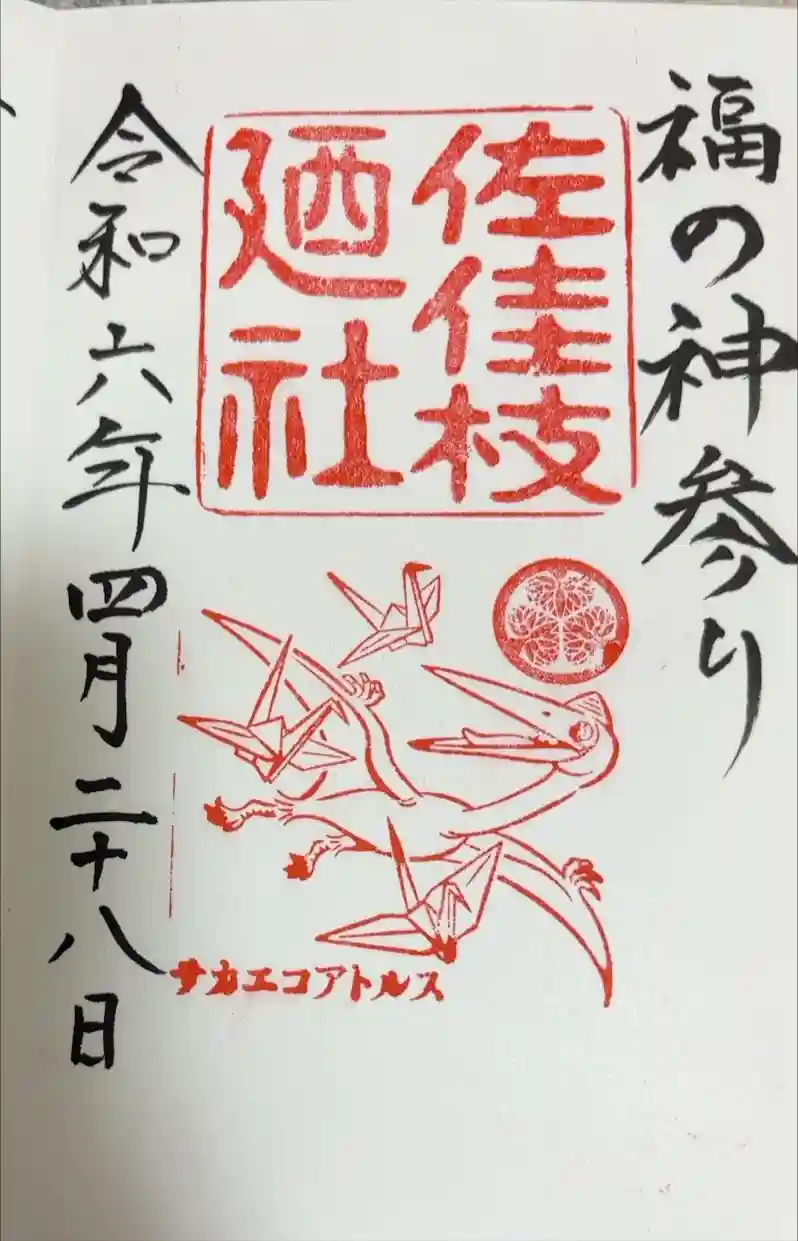 福の神参り
佐佳枝
廼社
サカエコアトルス
令和六年四月二十八日